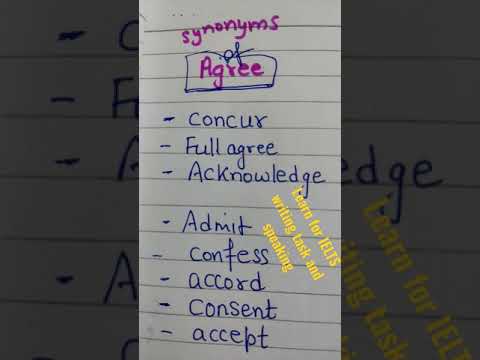 synonyms
of
Agree
- concur
- Full agree
- Acknowledge
- Admit
- confess
- accord
- consent
- accept
Learn for IELTS
writing task and
speaking